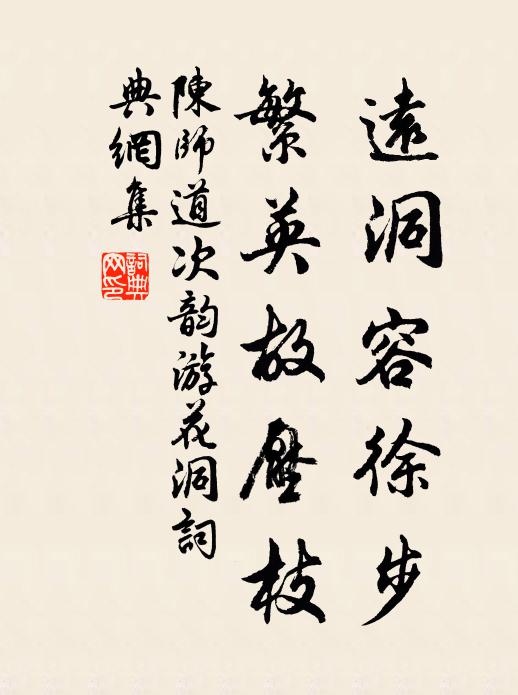 遠洞容徐步
繁英故壓枝
陳師道次韵游花洞詞
典網集
詞典网印